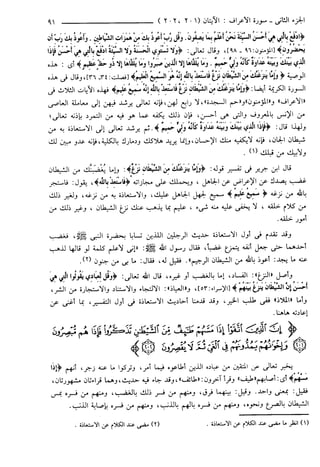 الجزء الثاني - سورة الأعراف : الآيتان (٢٠١، ٢٠٢) ٩١
﴿ادفع بالتي هي أحسن السيئة نحن أعلم بما يصفون. وقل رب أعوذ بك من همزات الشياطين. وأعوذ بك رب أن
يحضرون﴾ [المؤمنون: ٩٦ - ٩٨]، وقال تعالى: ﴿ولا تستوي الحسنة ولا السيئة ادفع بالتي هي أحسن فإذا
الذي بينك وبينه عداوة كأنه ولي حميم. وما يلقاها إلا الذين صبروا وما يلقاها إلا ذو حظ عظيم﴾ أي: هذه
الوصية ﴿وإما ينزغنك من الشيطان نزغ فاستعذ بالله إنه هو السميع العليم﴾ [فصلت: ٣٤ـ٣٦]، وقال في هذه
السورة الكريمة أيضا: ﴿وإما ينزغنك من الشيطان نزغ فاستعذ بالله إنه سميع عليم﴾ فهذه الآيات الثلاث في
«الأعراف» و«المؤمنون» و«حم السجدة»، لا رابع لهن، فإنه تعالى يرشد فيهن إلى معاملة العاصي
من الإنس بالمعروف والتي هي أحسن، فإن ذلك يكفه عما هو فيه من التمرد بإذنه تعالى؛
ولهذا قال: ﴿فإذا الذي بينك وبينه عداوة كأنه ولي حميم﴾، ثم يرشد تعالى إلى الاستعاذة به من
شيطان الجان، فإنه لا يكفيه منك الإحسان، وإنما يريد هلاكك ودمارك بالكلية، فإنه عدو مبين لك
ولأبيك من قبلك (١).
قال ابن جرير في تفسير قوله: ﴿وإما ينزغنك من الشيطان نزغ﴾: وإما يغضبنك من الشيطان
غضب يصدك عن الإعراض عن الجاهل، ويحملك على مجازاته ﴿فاستعذ بالله﴾، يقول: فاستجر
بالله من نزغه ﴿إنه سميع عليم﴾ سميع لجهل الجاهل عليك، والاستعاذة به من نزغه، ولغير ذلك
من كلام خلقه، لا يخفى عليه منه شيء، عليم بما يذهب عنك نزغ الشيطان، وغير ذلك من
أمور خلقه.
وقد تقدم في أول الاستعاذة حديث الرجلين اللذين تسابا بحضرة النبي ﷺ، فغضب
أحدهما حتى جعل أنفه يتمزع غضبا، فقال رسول الله ﷺ: «إني لأعلم كلمة لو قالها لذهب
عنه ما يجد: أعوذ بالله من الشيطان الرجيم». فقيل له، فقال: ما بي من جنون (٢).
وأصل «النزغ»: الفساد، إما بالغضب أو غيره، قال الله تعالى: ﴿وقل لعبادي يقولوا التي هي
أحسن إن الشيطان ينزغ بينهم﴾ [الإسراء: ٥٣]، و«العياذة»: الالتجاء والاستناد والاستجارة من الشر،
وأما «الملاذ» ففي طلب الخير، وقد قدمنا أحاديث الاستعاذة في أول التفسير، بما أغنى عن
إعادته هاهنا.
﴿إن الذين اتقوا إذا مسهم طائف من الشيطان تذكروا فإذا هم مبصرون
وإخوانهم يمدونهم في الغي ثم لا يقصرون﴾
يخبر تعالى عن المتقين من عباده الذين أطاعوه فيما أمر، وتركوا ما عنه زجر، أنهم ﴿إذا
مسهم﴾ أي: أصابهم «طيف» وقرأ آخرون: «طائف»، وقد جاء فيه حديث، وهما قراءتان مشهورتان،
فقيل: بمعنى واحد. وقيل: بينهما فرق، ومنهم من فسر ذلك بالغضب، ومنهم من فسره بمس
الشيطان بالصرع ونحوه، ومنهم من فسره بالهم بالذنب، ومنهم من فسره بإصابة الذنب.
(١) انظر ما مضى عند الكلام عن الاستعاذة. (٢) مضى عند الكلام عن الاستعاذة.